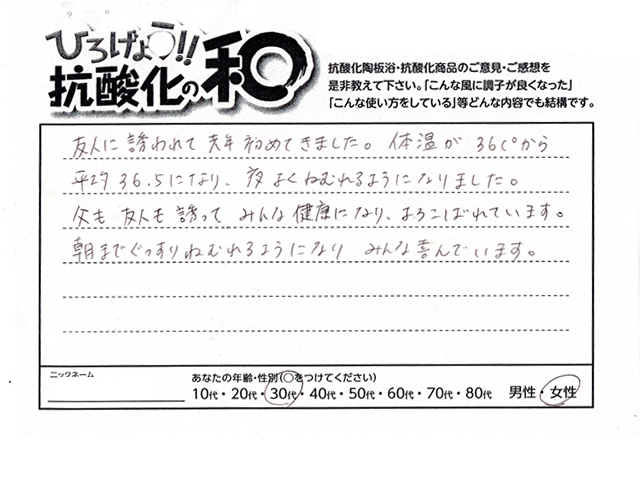 ひろげよう!!
抗酸化の和
抗酸化陶板浴・抗酸化商品のご意見・ご感想を
是非教えて下さい。「こんな風に調子が良くなった」
「こんな使い方をしている」等どんな内容でも結構です。
友人に誘われて 去年 初めてきました。 体温が 36℃から
平均 36.5になり、夜 よくねむれるようになりました。
父も 友人も 誘って みんな 健康になり、よろこばれています。
朝までぐっすりねむれるようになり みんな喜んでいます。
ニックネーム
あなたの年齢・性別(○をつけてください)
10代・20代・30代・40代・50代・60代・70代・80代 男性・女性